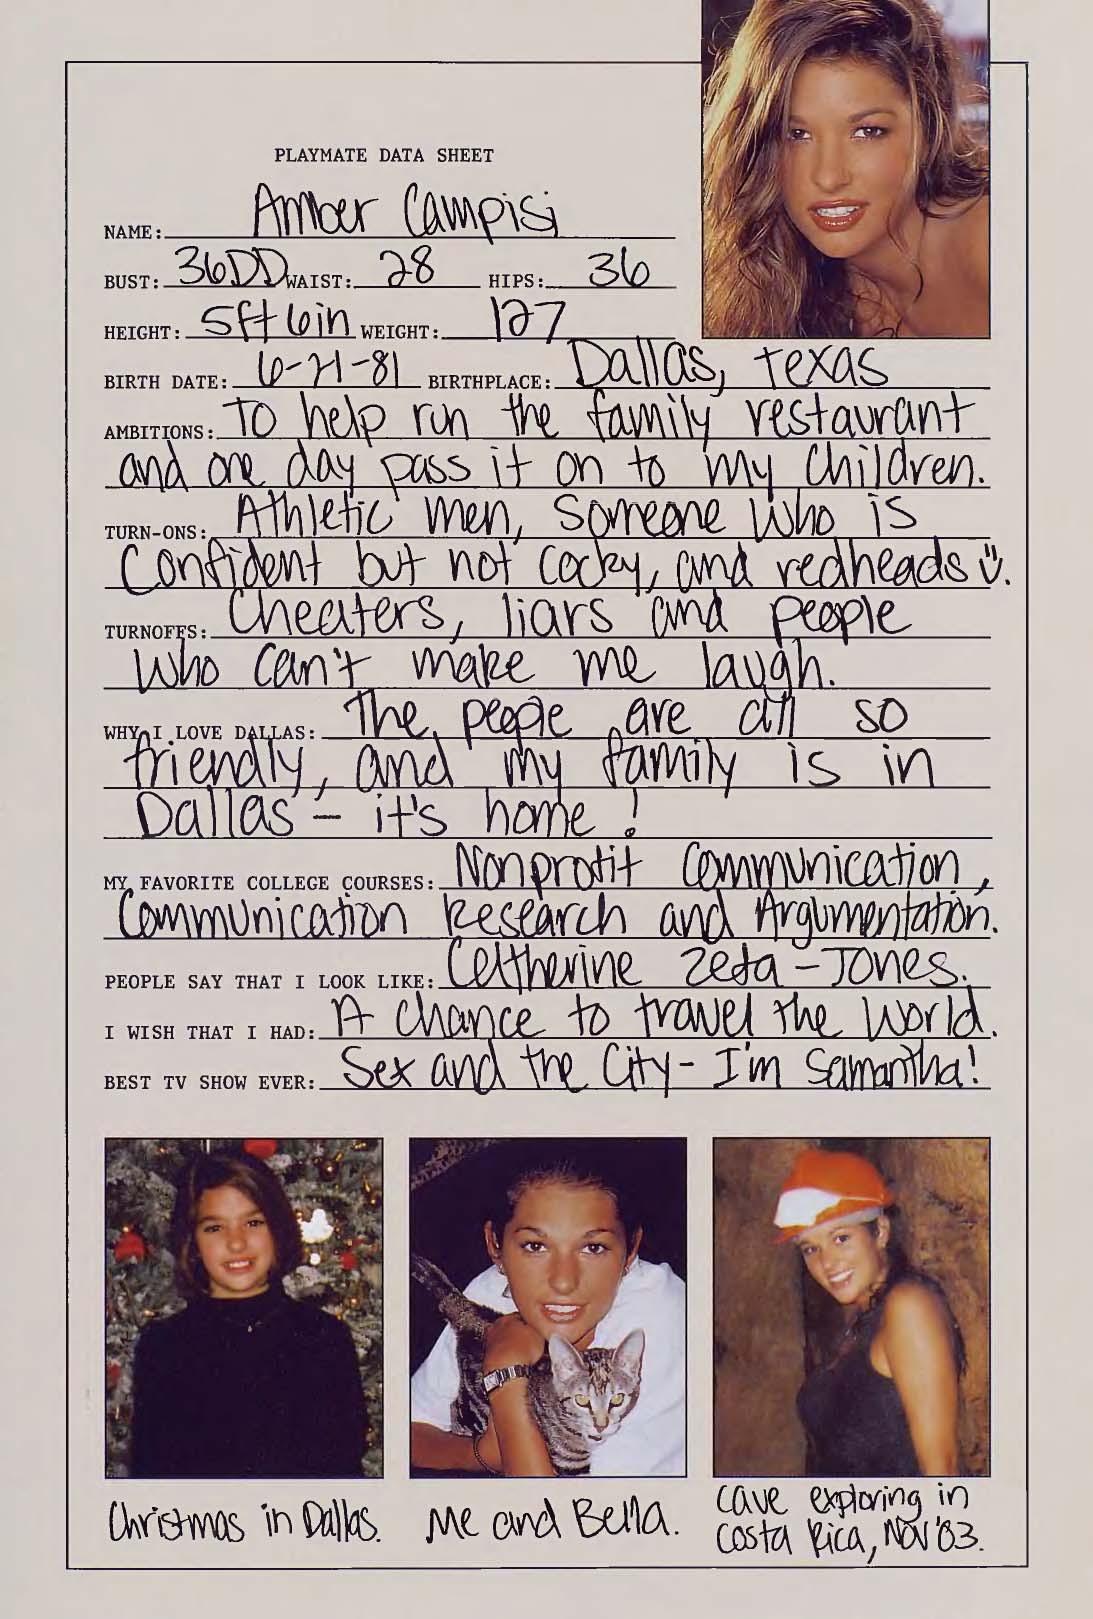 PLAYMATE DATA SHEET
NAME: Amber Campisi
BUST: 36DD WAIST: 28 HIPS: 36
HEIGHT: 5ft 6in WEIGHT: 127
BIRTH DATE: 6-21-81 BIRTHPLACE: Dallas, texas
AMBITIONS: To help run the family restaurant
and one day pass it on to my children.
TURN-ONS: Athletic men, someone who is
confident but not cocky, and redheads Ü.
TURNOFFS: Cheaters, liars and people
who can't make me laugh.
WHY I LOVE DALLAS: The people are all so
friendly, and my family is in
Dallas – it's home!
MY FAVORITE COLLEGE COURSES: Nonprofit Communication,
Communication Research and Argumentation.
PEOPLE SAY THAT I LOOK LIKE: Catherine Zeta-Jones.
I WISH THAT I HAD: A chance to travel the World.
BEST TV SHOW EVER: Sex and the City - I'm Samantha!
Christmas in Dallas.
Me and Bella.
cave exploring in
Costa Rica, Nov '03.